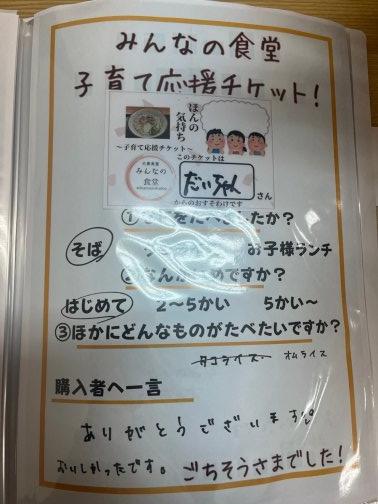 みんなの食堂
子育て応援チケット！
ほんの
気持ち
～子育て応援チケット～
みんなの
食堂
このチケットは
だいちゃん さん
からのおすそわけです
べましたか？
そば お子様ランチ
ですか？
はじめて 2～5かい 5かい～
③ほかにどんなものがたべたいですか？
タコライス オムライス
購入者へ一言
ありがとうございます
おいしかったです。ごちそうさまでした！